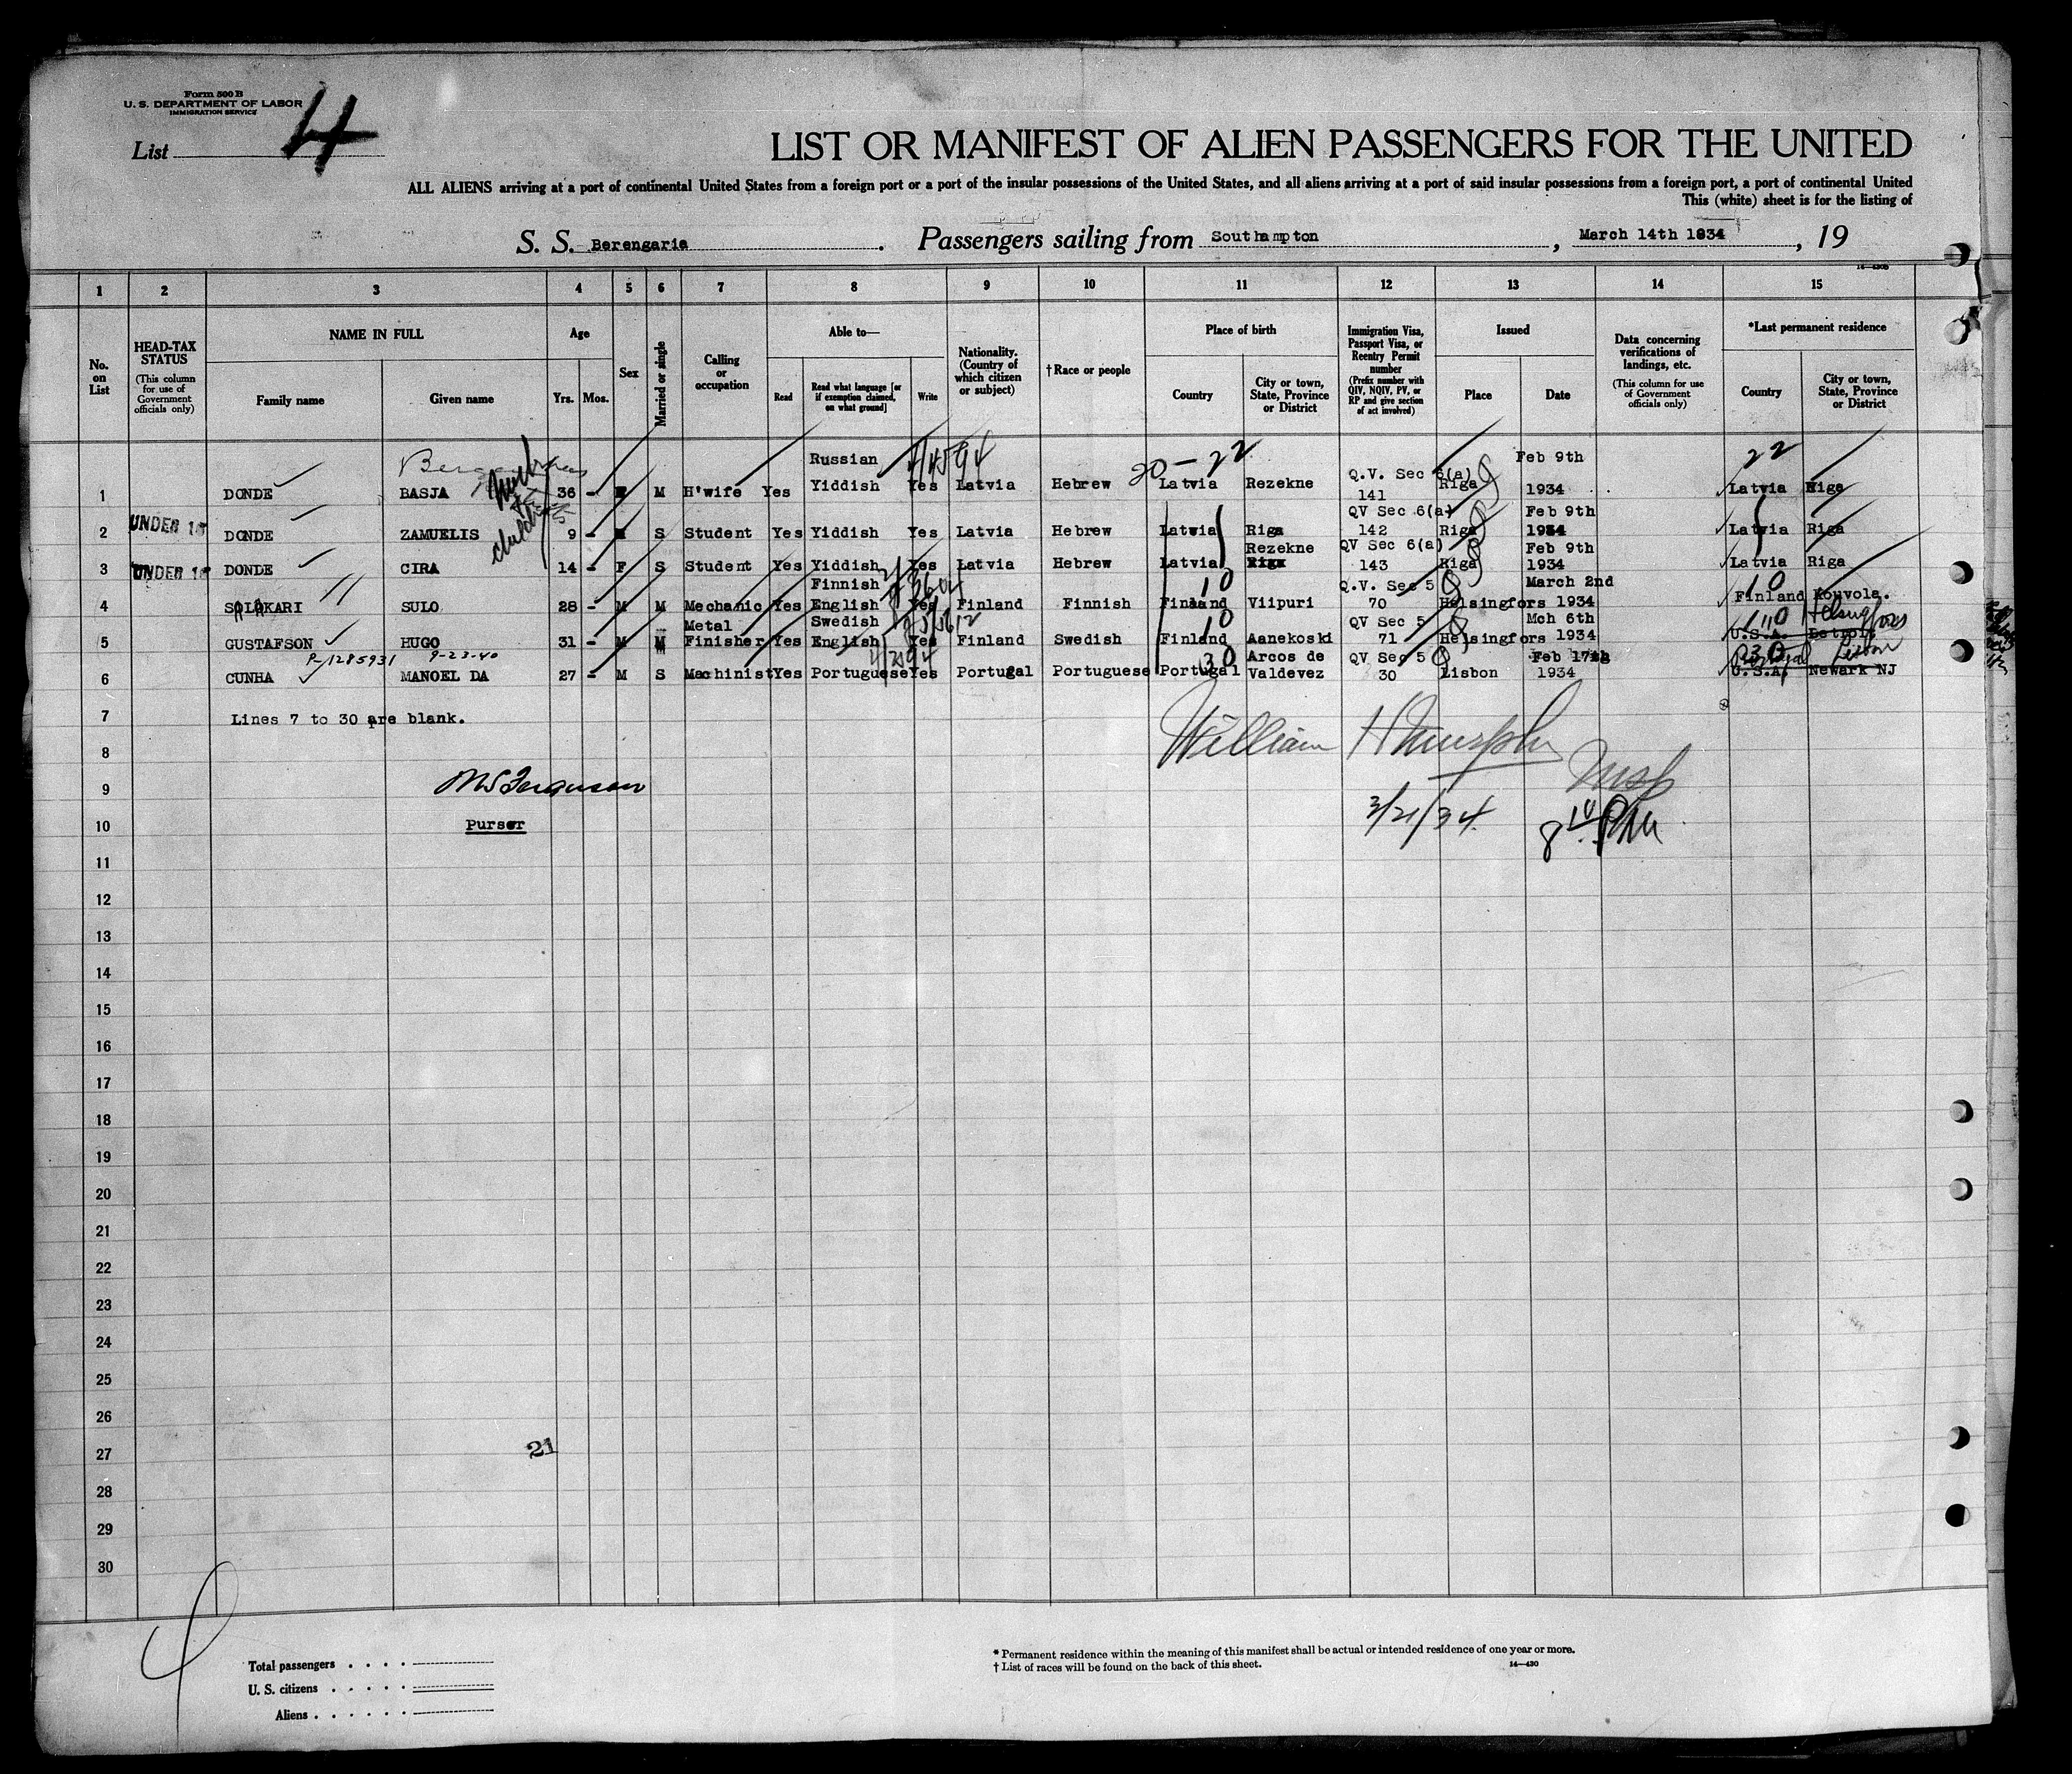 Form 500 B
U. S. DEPARTMENT OF LABOR
IMMIGRATION SERVICE
List 4
LIST OR MANIFEST OF ALIEN PASSENGERS FOR THE UNITED
ALL ALIENS arriving at a port of continental United States from a foreign port or a port of the insular possessions of the United States, and all aliens arriving at a port of said insular possessions from a foreign port, a port of continental United
This (white) sheet is for the listing of
S. S. Berengaria. Passengers sailing from Southampton, March 14th 1934, 19
14-430b
1 2 3 4 5 6 7 8 9 10 11 12 13 14 15
No. on List
HEAD-TAX STATUS (This column for use of Government officials only)
NAME IN FULL
Family name
Given name
Age
Yrs. Mos.
Sex
Married or single
Calling or occupation
Able to—
Read
Read what language [or if exemption claimed, on what ground]
Write
Nationality. (Country of which citizen or subject)
†Race or people
Place of birth
Country
City or town, State, Province or District
Immigration Visa, Passport Visa, or Reentry Permit number (Prefix number with QIV, NQIV, PV, or RP and give section of act involved)
Issued
Place
Date
Data concerning verifications of landings, etc. (This column for use of Government officials only)
*Last permanent residence
Country
City or town, State, Province or District
Russian 20-22 Feb 9th 22
1 DONDE BASJA 36 - F M H'wife Yes Yiddish Yes Latvia Hebrew Latvia Rezekne Q.V. Sec 6(a) 141 Riga 1934 Latvia Riga
UNDER 16
2 DONDE ZAMUELIS 9 - S Student Yes Yiddish Yes Latvia Hebrew Latvia Riga QV Sec 6(a) 142 Riga Feb 9th 1934 Latvia Riga
UNDER 16
3 DONDE CIRA 14 - F S Student Yes Yiddish Yes Latvia Hebrew Latvia Rezekne QV Sec 6(a) 143 Riga Feb 9th 1934 Latvia Riga
4 SALAKARI SULO 28 - M M Mechanic Yes Finnish English Yes Finland Finnish Finland Viipuri Q.V. Sec 5 70 Helsingfors March 2nd 1934 Finland Kouvola.
5 GUSTAFSON HUGO 31 - M M Metal Finisher Yes Swedish English Yes Finland Swedish Finland Aanekoski QV Sec 5 71 Helsingfors Mch 6th 1934 U.S.A. Detroit
P-1285931 9-23-40
6 CUNHA MANOEL DA 27 - M S Machinist Yes Portuguese Yes Portugal Portuguese Portugal Arcos de Valdevez QV Sec 5 30 Lisbon Feb 17th 1934 U.S.A. Newark NJ
Portugal Lisbon
7 Lines 7 to 30 are blank.
William H Murphy
8
9
Insp
10 Purser
3/21/34
8 10 PM
11
12
13
14
15
16
17
18
19
20
21
22
23
24
25
26
27
21
28
29
30
4
Total passengers
U. S. citizens
Aliens
* Permanent residence within the meaning of this manifest shall be actual or intended residence of one year or more.
† List of races will be found on the back of this sheet.
14-430